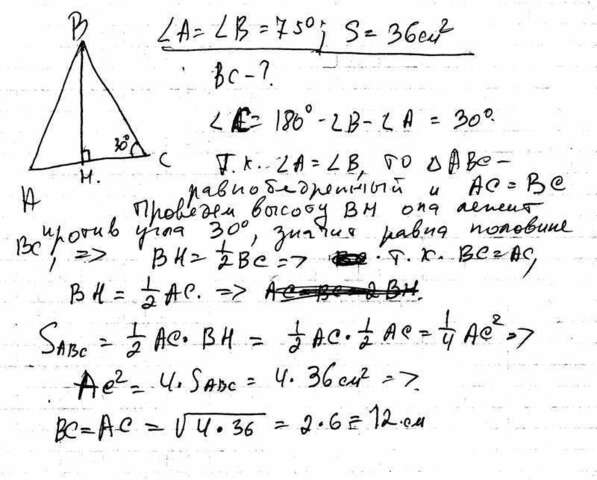 B
∠A = ∠B = 75°; S = 36 см²
BC - ?
∠C = 180° - ∠B - ∠A = 30°.
30°
A H. C
Т.к. ∠A = ∠B, то △ABC -
равнобедренный и AC = BC
Проведем высоту BH она лежит
против угла 30°, значит равна половине
BC, => BH = 1/2 BC => . т.к. BC = AC,
BH = 1/2 AC. => AC = BC = 2 BH.
S_ABC = 1/2 AC · BH = 1/2 AC · 1/2 AC = 1/4 AC² =>
AC² = 4 · S_ABC = 4 · 36 см² =>.
BC = AC = √4 · 36 = 2 · 6 = 12 см